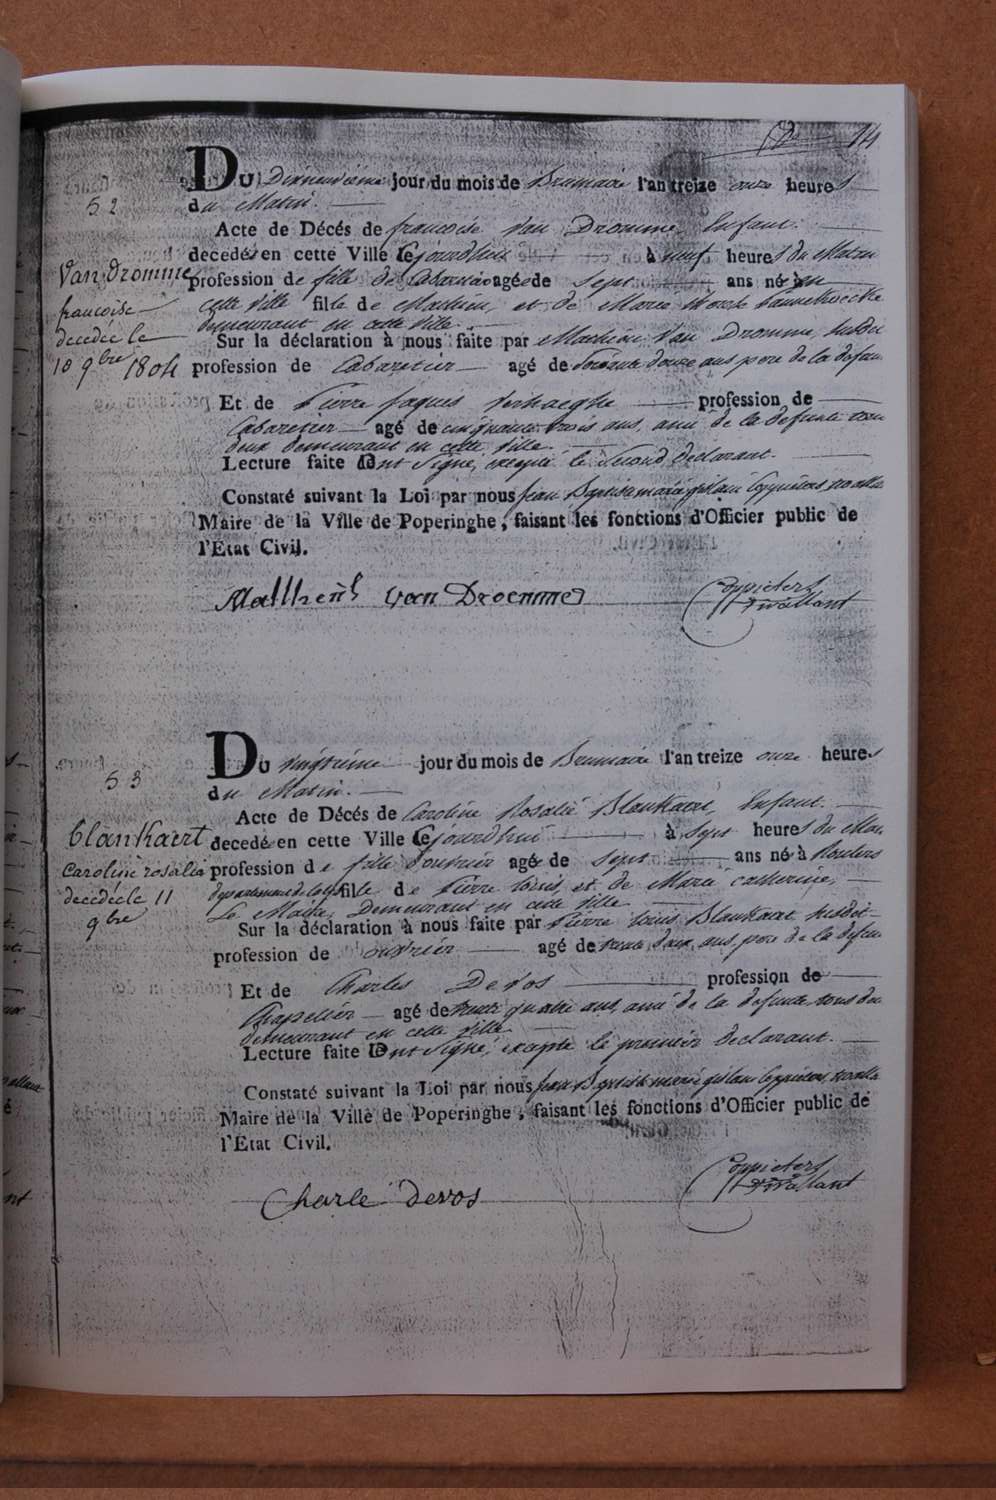 14
Du Dixneuvième jour du mois de Brumaire l'an treize onze heures
du Matin.
52
Acte de Décés de françoise Van Dromme, Enfant.
decedée en cette Ville Cejourdhui à neuf heures du Matin
Van Dromme
profession de fille de Cabaretier agée de Sept ans né à en
françoise
cette Ville fille de Mathieu, et de Marie
demeurant en cette Ville.
decedée le
Sur la déclaration à nous faite par Mathieu Van Dromme, susdit
10 9bre 1804
profession de Cabaretier agé de Soixante douze ans père de la defunte
Et de Pierre Jaques Verhaeghe profession de
Cabaretier agé de cinquante trois ans, ami de la defunte tous
deux demeurant en cette Ville.
Lecture faite Ont Signé, excepté le Second Declarant.
Constaté suivant la Loi par nous Jean Baptiste marie ghislain Coppieters
Maire de la Ville de Poperinghe, faisant les fonctions d'Officier public de
l'Etat Civil.
Van Droemme
Coppieters
Du vingtième jour du mois de Brumaire l'an treize onze heures
du Matin.
53
Acte de Décés de Caroline Rosalie Blankaert, Enfant.
Blankaert
decedé en cette Ville Cejourdhui à Sept heures du Mat.
caroline rosalia
profession de fille d'ouvrier agé de Sept ans né à Roulers
decedé le 11
departement de la Lys fille de Pierre Louis, et de Marie catherine,
9bre
Le Maitre, Demeurant en cette ville
Sur la déclaration à nous faite par Pierre Louis Blankaert susdit
profession de ouvrier agé de trente deux ans, père de la defunte
Et de Charles Devos profession de
Chapelier agé de trente quatre ans, ami de la defunte, tous deux
demeurant en cette Ville
Lecture faite Ont Signé, excepté le premier Declarant.
Constaté suivant la Loi par nous Jean Baptiste marie ghislain Coppieters
Maire de la Ville de Poperinghe, faisant les fonctions d'Officier public de
l'Etat Civil.
Charle devos
Coppieters